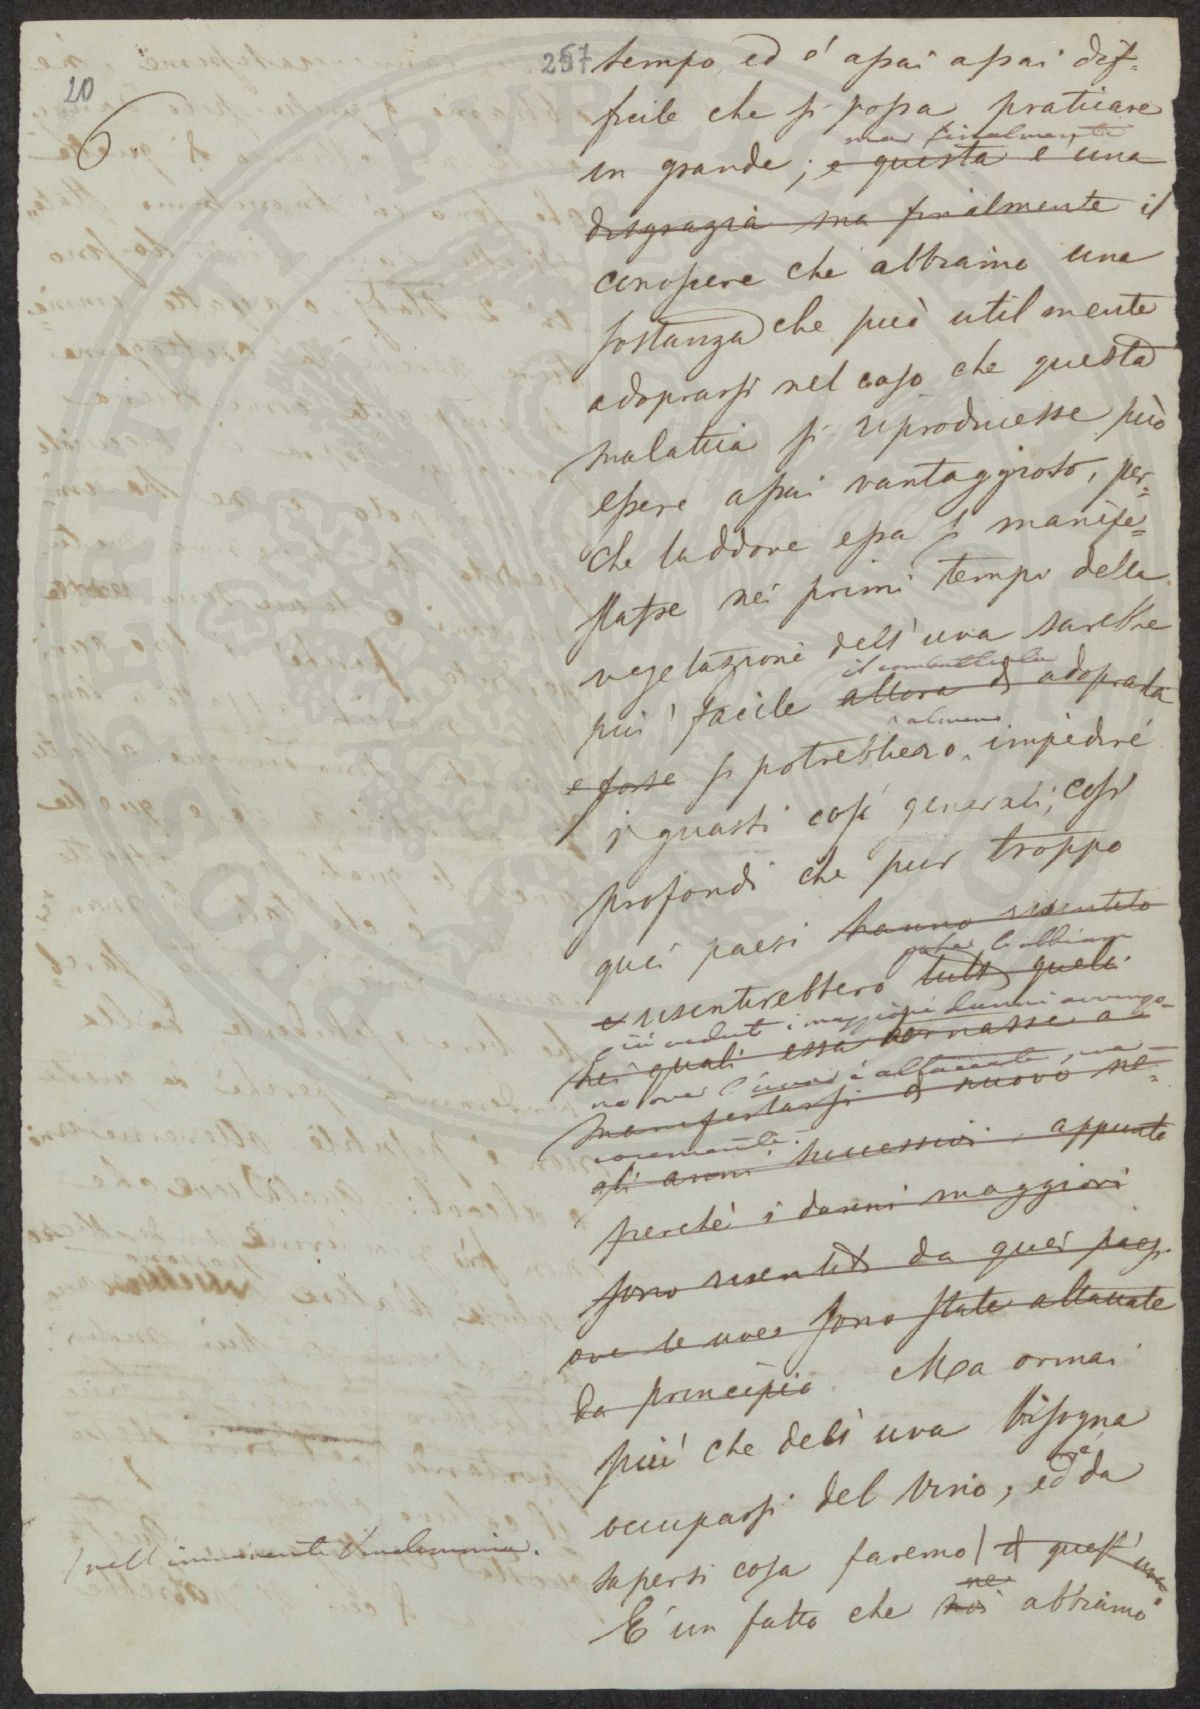 20
257
6.
tempo, ed e' assai assai dif=
ficile che si possa praticare
ma finalmente
in grande; e questa e' una
disgrazia ma finalmente il
conoscere che abbiamo una
sostanza che può utilmente
adoprarsi nel caso che questa
malattia si riproducesse può
essere assai vantaggioso, per=
che laddove essa si manife=
stasse nei primi tempi della
vegetazione dell'uva sarebbe
il combatterla
più facile allora di adoprarla
almeno
e forse si potrebbero impedire
i guasti così generali, così
profondi che pur troppo
quei paesi hanno risentito
e risentirebbero tutti quelli
veduti i maggiori danni avvengo=
nei quali essa tornasse a
no ove l'uva è attaccata
manifestarsi di nuovo ne=
gli anni successivi, appunto
perchè i danni maggiori
sono risentiti da quei paesi
ove le uve sono state attaccate
da principio. Ma ormai
più che dell'uva bisogna
occuparsi del vino, ed da
sapersi cosa faremo | di quest'uva.
nell'imminente Vendemmia.
ne
E' un fatto che noi abbiamo